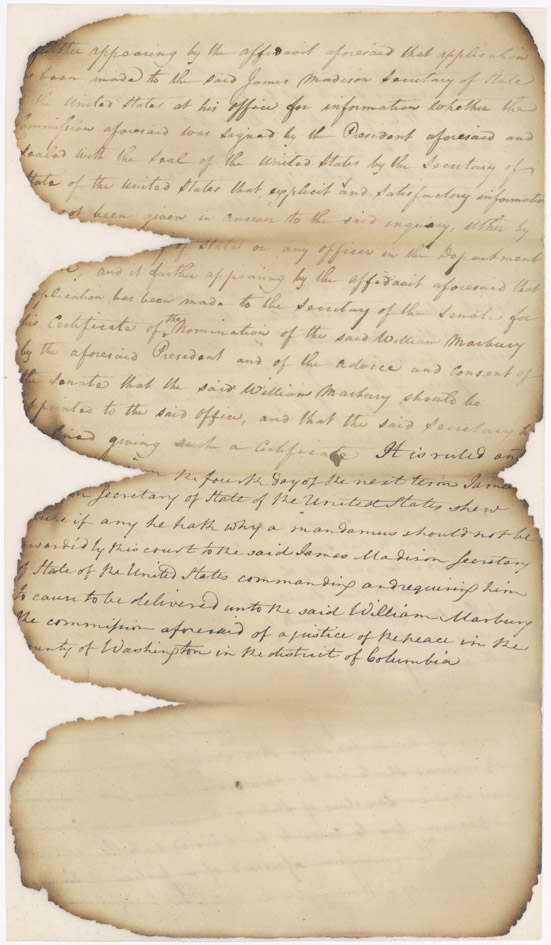 further appearing by the affidavit aforesaid that application
been made to the said James Madison Secretary of State
the United States at his office for information whether the
Commission aforesaid was signed by the President aforesaid and
sealed with the seal of the United States by the Secretary of
State of the United States that explicit and satisfactory information
not been given in answer to the said inquiry, either by
of State or any officer in the Department
and it further appearing by the affidavit aforesaid that
application has been made to the Secretary of the Senate for
his Certificate of the Nomination of the said William Marbury
by the aforesaid President and of the advice and consent of
the Senate that the said William Marbury should be
appointed to the said office, and that the said Secretary
giving such a Certificate It is ruled
the fourth day of the next term
Secretary of State of the United States shew
cause if any he hath why a mandamus should not be
awarded by this court to the said James Madison Secretary
of State of the United States commanding and requiring him
to cause to be delivered unto the said William Marbury
the commission aforesaid of a justice of the peace in the
county of Washington in the district of Columbia